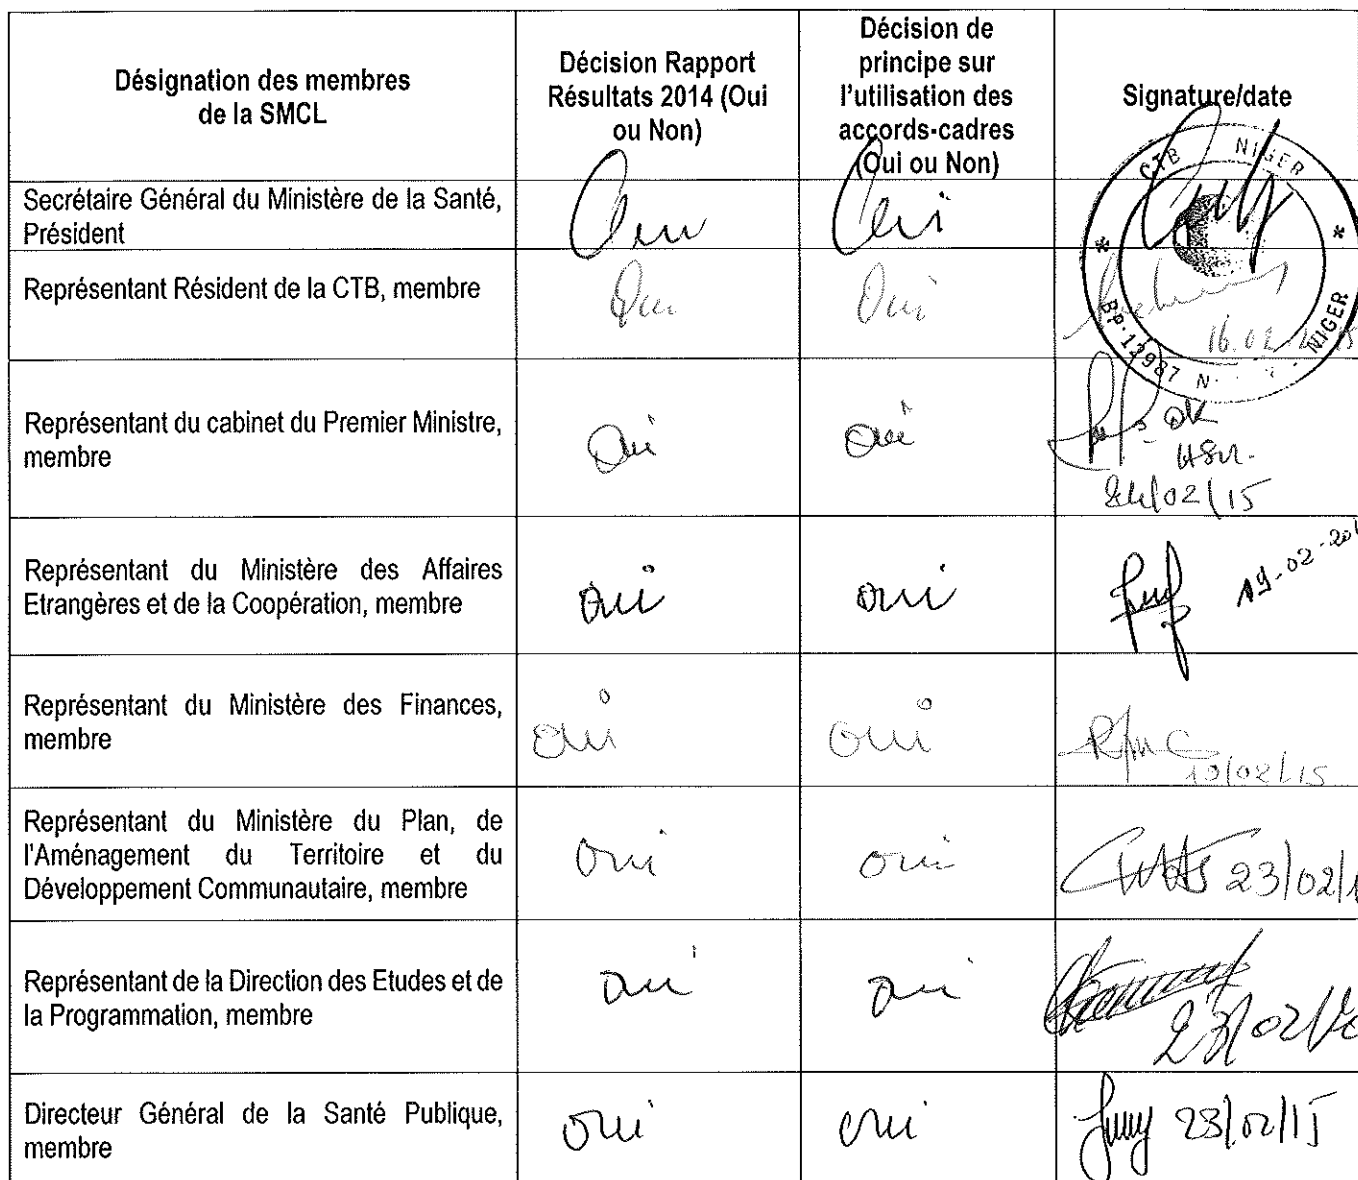 Désignation des membres
de la SMCL
Décision Rapport
Résultats 2014 (Oui
ou Non)
Décision de
principe sur
l'utilisation des
accords-cadres
(Oui ou Non)
Signature/date
Secrétaire Général du Ministère de la Santé,
Président
Oui
Oui
CTB NIGER
Représentant Résident de la CTB, membre
Oui
Oui
16.02
BP.12987 N
NIGER
Représentant du cabinet du Premier Ministre,
membre
Oui
Oui
OK
24/02/15
Représentant du Ministère des Affaires
Etrangères et de la Coopération, membre
oui
oui
19-02-201
Représentant du Ministère des Finances,
membre
oui
oui
/02/15
Représentant du Ministère du Plan, de
l'Aménagement du Territoire et du
Développement Communautaire, membre
oui
oui
23/02/1
Représentant de la Direction des Etudes et de
la Programmation, membre
oui
oui
23/02/
Directeur Général de la Santé Publique,
membre
oui
oui
23/02/15